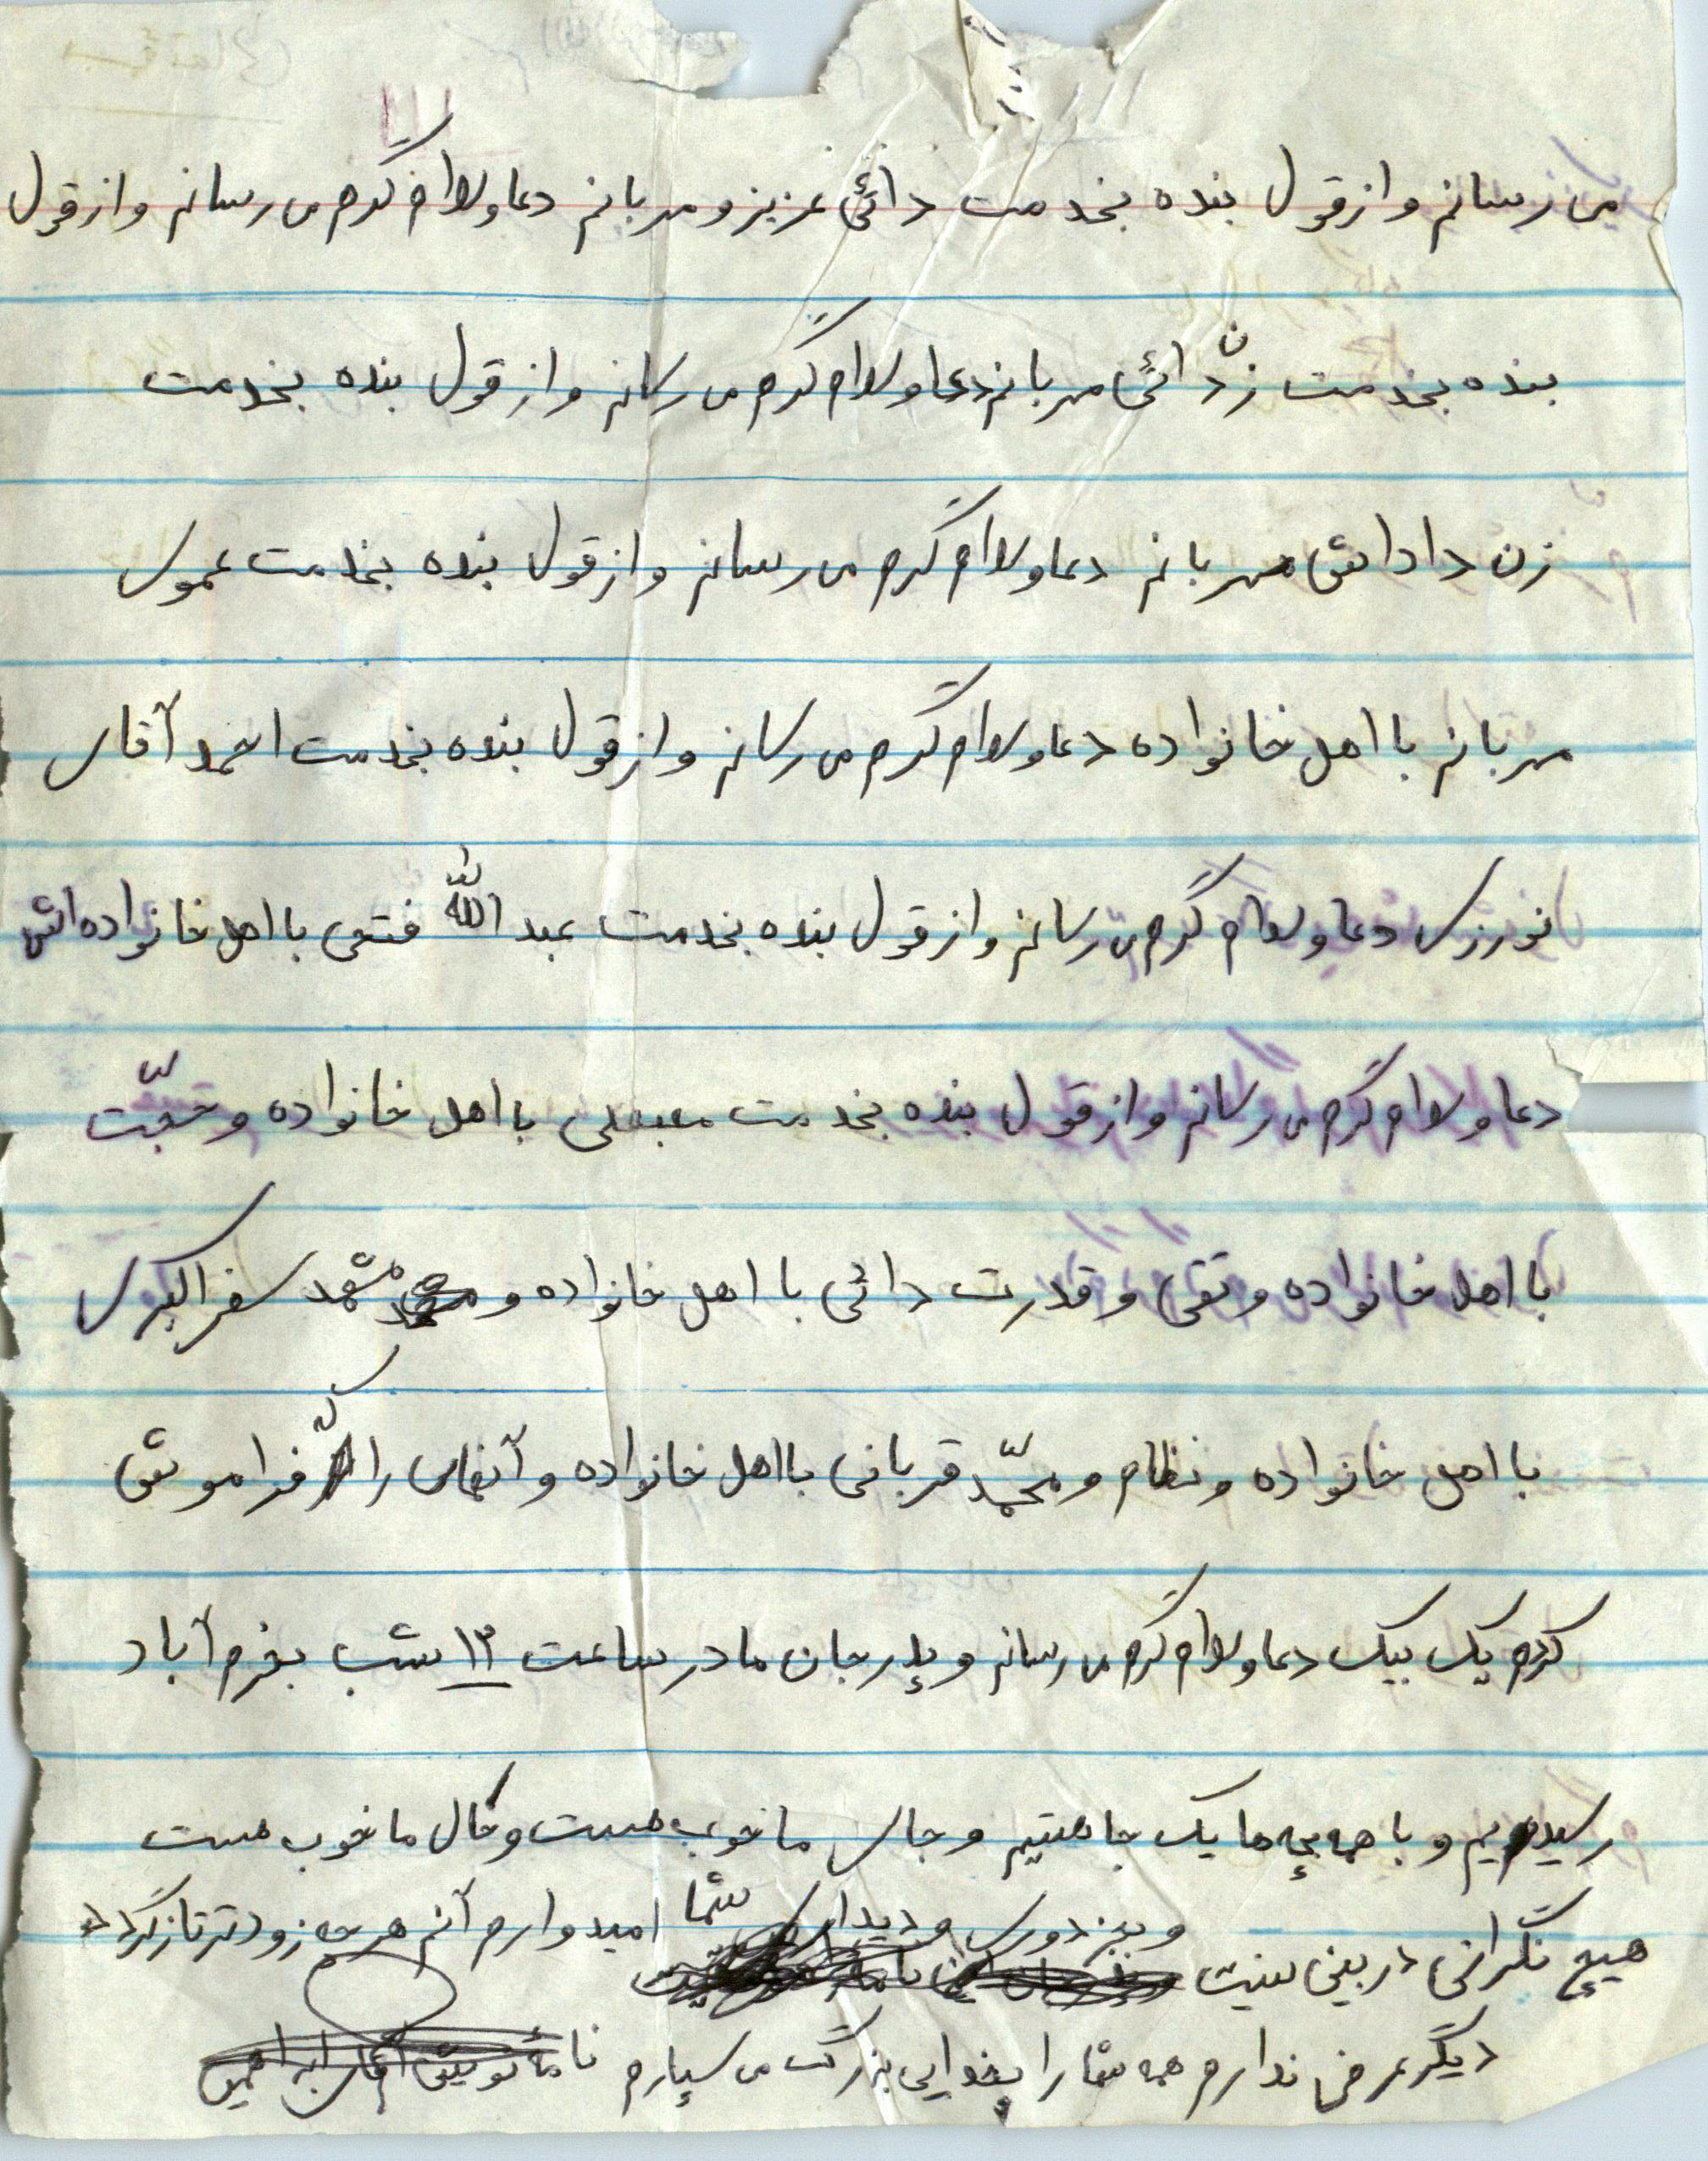 می رسانم و از قول بنده بخدمت دائی عزیز و مهربانم دعا و سلام گرم می رسانم و از قول
بنده بخدمت زن دائی مهربانم دعا و سلام گرم می رسانم و از قول بنده بخدمت
زن داداش مهربانم دعا و سلام گرم می رسانم و از قول بنده بخدمت عموی
مهربانم با اهل خانواده دعا و سلام گرم می رسانم و از قول بنده بخدمت احمد آقای
نورزی دعا و سلام گرم می رسانم و از قول بنده بخدمت عبد الله فتحی با اهل خانواده اش
دعا و سلام گرم می رسانم و از قول بنده بخدمت با اهل خانواده و حجّت
با اهل خانواده و تقی و قدرت دائی با اهل خانواده و مشهد سفر اکبری
با اهل خانواده و نظام و محمّد قربانی با اهل خانواده و را که فراموش
کردم یک بیک دعا و سلام گرم می رسانم و پدر جان ما در ساعت ۱۲ شب بخرم آباد
رسیدیم و با همه بچه ها یک جا هستیم و جای ما خوب هست و حال ما خوب هست
هیچ نگرانی در بینی نیست و بجز دوری و دیدار شما امیدوارم آنم هر چه زودتر تازه گردد
دیگر عرضی ندارم همه شما را بخدایی بزرگ می سپارم